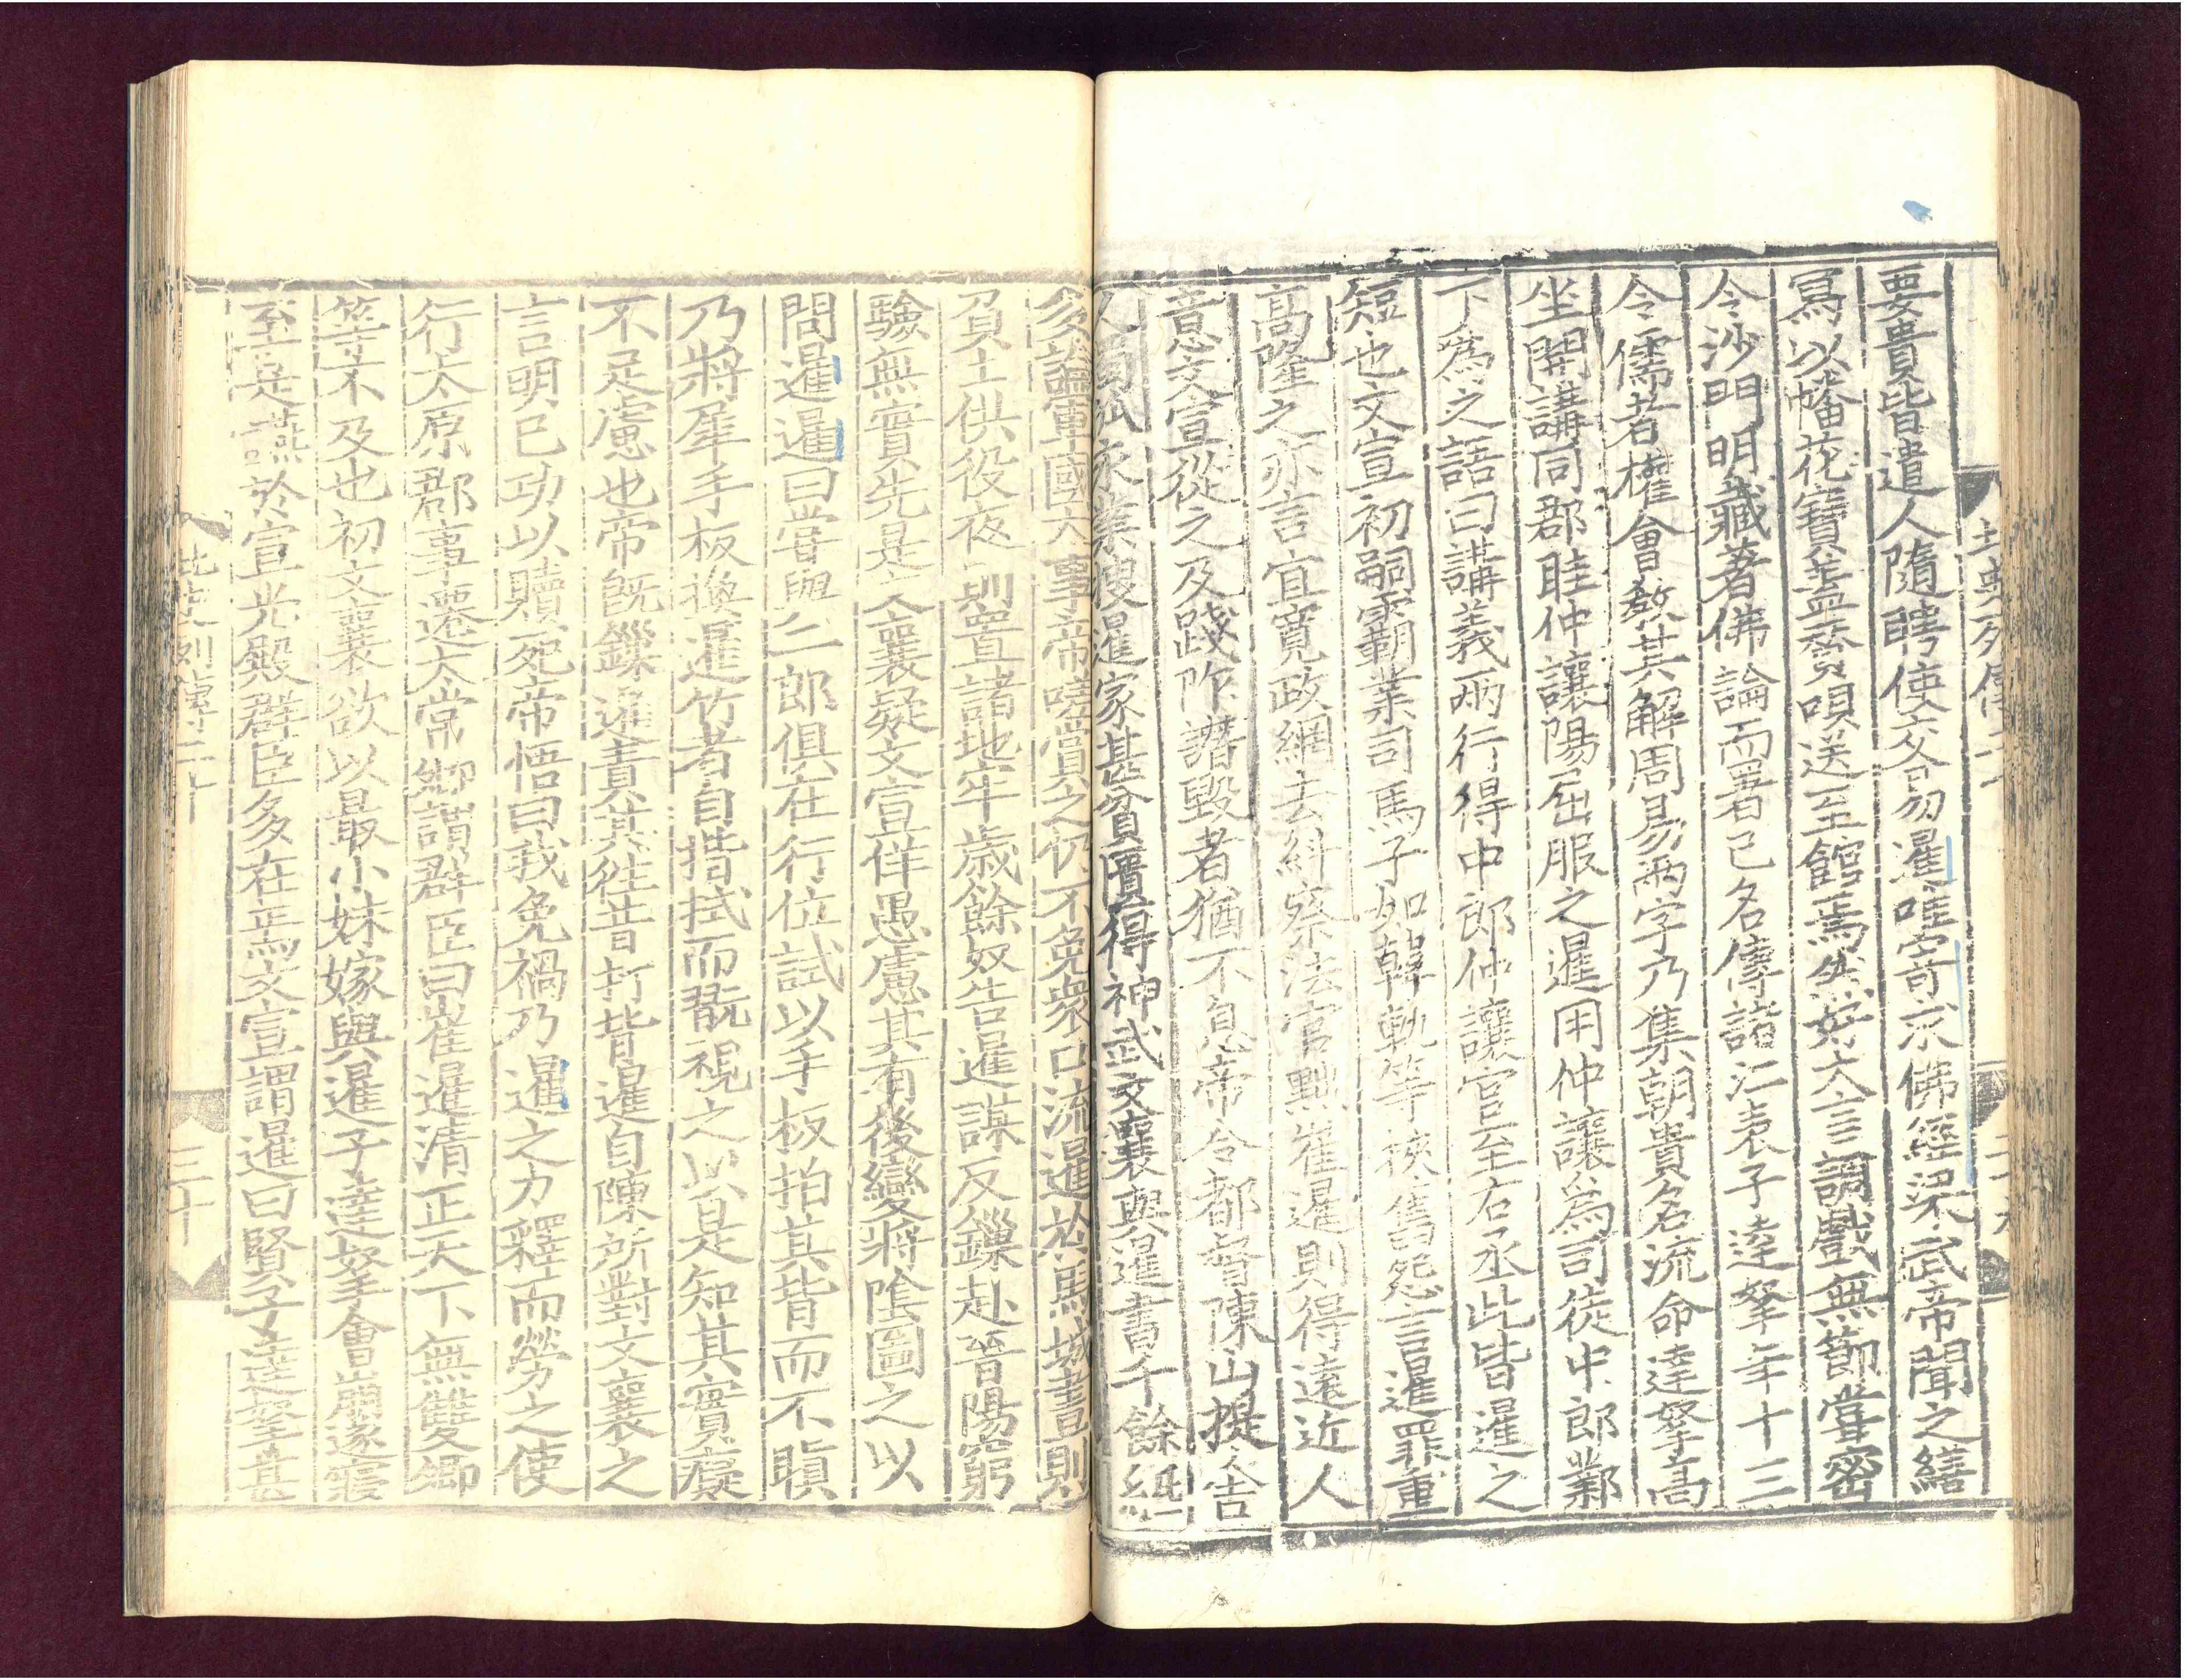 要貴皆遣人隨聘使交易暹唯寄求佛經梁武帝聞之繕
寫以幡花寶蓋贊唄送至館焉然好大言調戲無節嘗密
令沙門明藏著佛論而署己名傳諸江表子達拏年十三
令儒者權會教其解周易兩字乃集朝貴名流命達拏高
坐開講同郡眭仲讓陽屈服之暹用仲讓爲司徒中郎鄴
下爲之語曰講義兩行得中郎仲讓官至右丞此皆暹之
短也文宣初嗣霸業司馬子如韓軌等挾舊怨言暹罪重
高隆之亦言宜寬政網去糾察法官黜崔暹則得遠近人
意文宣從之及踐阼譖毀者猶不息帝令都督陳山提舍
人獨孤永業搜暹家甚貧匱得神武文襄與暹書千餘紙
多論軍國大事帝嗟賞之仍不免衆口流暹於馬城晝則
負土供役夜則置諸地牢歲餘奴告暹謀反鏁赴晉陽窮
驗無實先是文襄疑文宣佯愚慮其有後變將陰圖之以
問暹暹曰嘗與二郎俱在行位試以手板拍其背而不瞋
乃將犀手板換暹竹者自揩拭而翫視之以是知其實癡
不足慮也帝既鏁暹責其往昔打背暹自陳所對文襄之
言明己功以贖死帝悟曰我免禍乃暹之力釋而勞之使
行太原郡事遷太常卿謂群臣曰崔暹清正天下無雙卿
等不及也初文襄欲以最小妹嫁與暹子達拏會崩遂寢
至是讌於宣光殿群臣多在焉文宣謂暹曰賢子達拏甚
北史列傳二十
三十